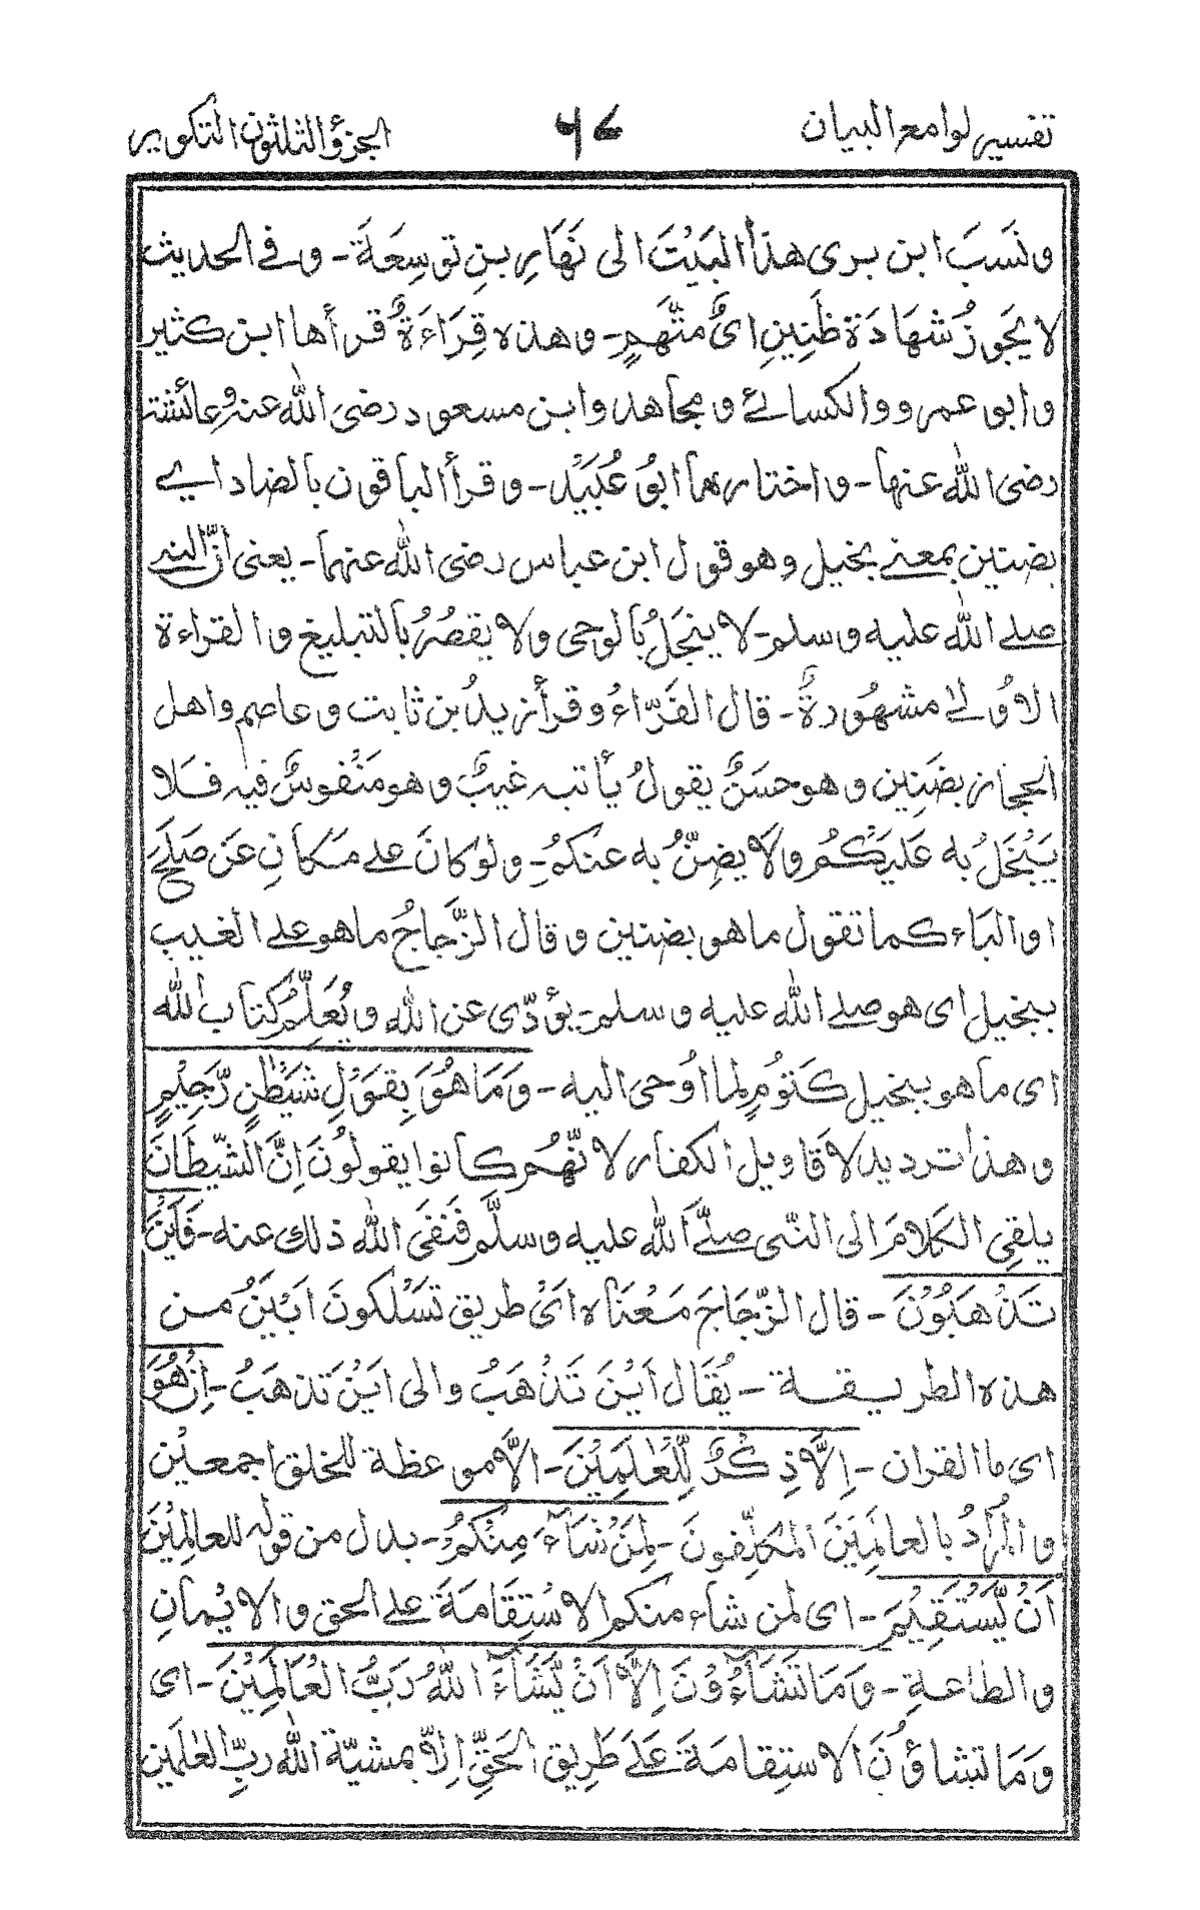 تفسير لوامع البيان ٦٧ الجزؤ الثلثون التكوير
ونَسَبَ ابن برى هذا البَيْتَ الى نَهَارِ بنِ توسِعَةَ - وفى الحديث
لا يجَوزُ شهَادَة ظَنِينٍ اىْ متَّهَمٍ - وهذه قِرَاءَةٌ قرأها ابن كثير
وابو عمرو والكسائے ومجاهد وابن مسعود رضىَ الله عنہ وعائشۃ
رضى الله عنها - واختارها ابوُ عُبَيْد - وقرأ الباقون بالضاد اے
بضنين بمعنے بخيل وهو قول ابن عباس رضى الله عنهما - يعنى انّ النبى
صلے الله عليه وسلم - لا يبخَلُ بالوحى ولا يقصُرُ بالتبليغ والقراءة
الاوُلےٰ مشهُورةٌ - قال الفَرّاءُ وقرأ زيدُ بن ثابت وعاصم واهل
الحجاز بضَنِين وهو حسَنٌ يقولُ يأتيہ غيبٌ وهو مَنْفوسٌ فيہ فلا
يَبْخَلُ به عَلَيكُمُ ولَا يضِنُّ به عنكمُ - ولو كانَ علے مكانِ عَن صَلَحَ
او الباء كما تقول ما هو بضنين وقال الزَّجاجُ ما هو علے الغيب
ببخيل اى هو صلے الله عليه وسلم - يؤدّى عن الله ويُعَلِّمُ كتاب الله
اى ما هو ببخيل كَتوُمٍ لما اوُحى اليه - وَمَا هُوَ بِقَوْلِ شَيْطٰنٍ رَّجِيْمٍ
وهذا ترديد لاَقاويل الكفار لانّهُم كانوا يقولُونَ اِنَّ الشّيطَانَ
يلقِى الكَلامَ الى النّبى صلےَّ اللهُ عليه وسلَّم فَنَفىَ اللهُ ذلك عنه - فَاَيْنَ
تَذْهَبُوْنَ - قال الزّجَاجَ مَعْنَاه اىْ طريق تَسْلكونَ ابْيَنُ من
هذه الطريقة - يُقَال اَيْنَ تَذْهَبُ والى ايْنَ تذهَبُ - اِنْ هُوَ
اى ما القران - اِلَّا ذِكْرٌ لِّلْعٰلَمِيْنَ - الّا موعظة للخلق اجمعين
والمُرادُ بالعالَمِيَنَ المكلّفونَ - لِمَنْ شَآءَ مِنْكُمْ - بدل من قولہ للعالمِيْنَ
اَنْ يَّسْتَقِيْمَ - اى لمن شاء منكم الاسْتِقَامَةَ علے الحق والايْمانِ
والطاعةِ - وَمَا تَشَآءُوْنَ اِلَّا اَنْ يَّشَآءَ اللهُ رَبُّ الْعَالَمِيْنَ - اى
وَمَا تشاؤُنَ الاستِقامَةَ عَلےَ طَرِيق الحَقِّ اِلاّ بمشيّة الله ربِّ العٰلمَين